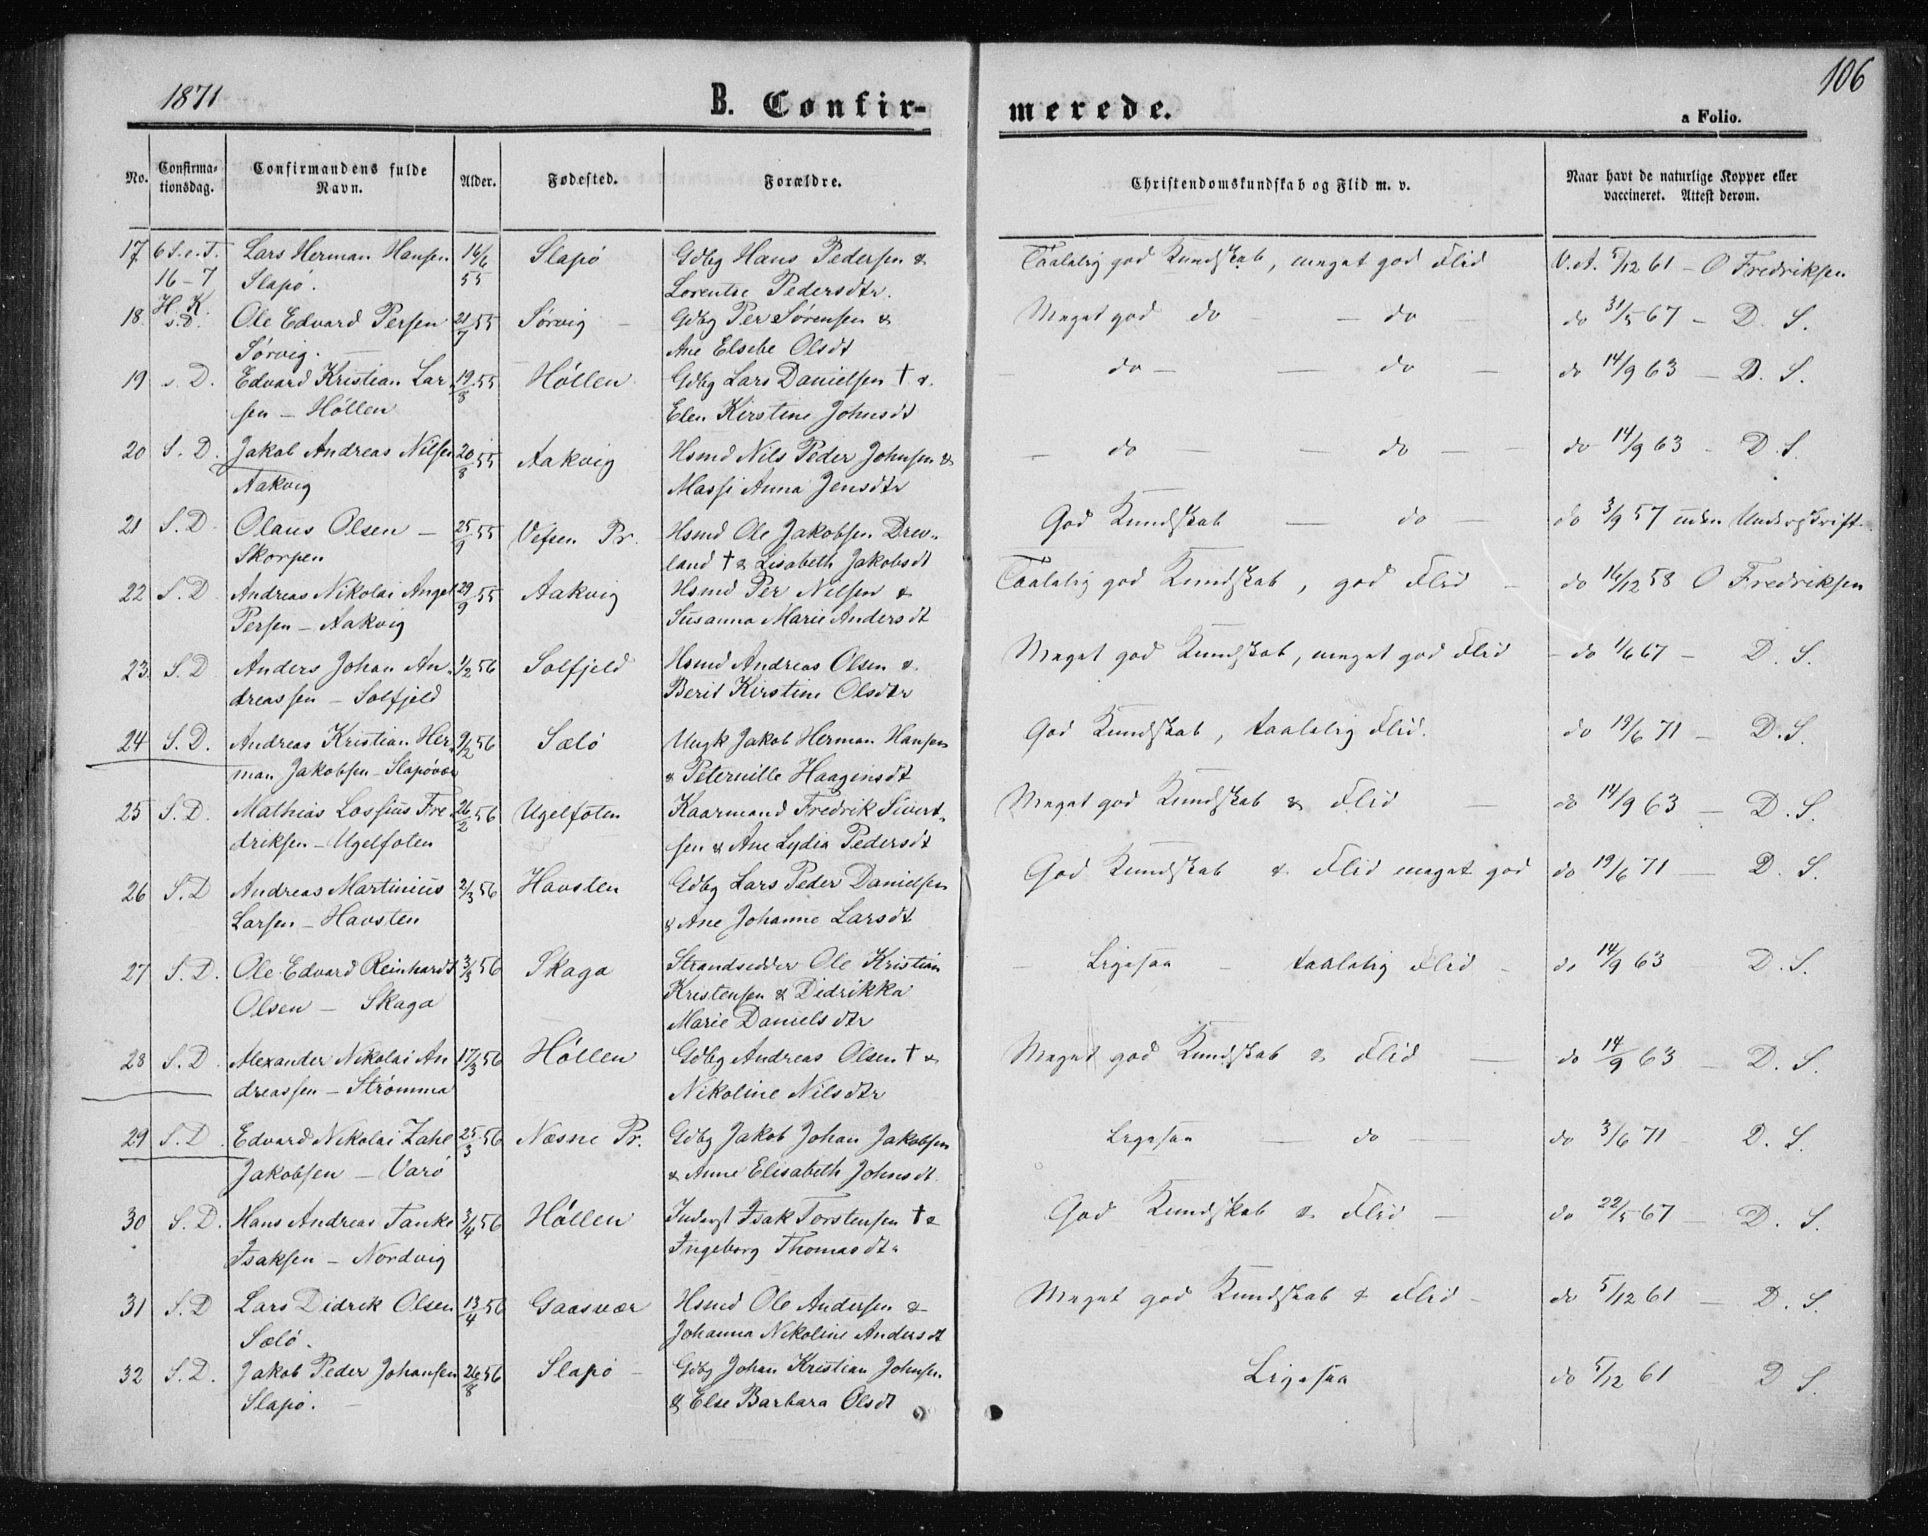 1871
B. Confir-
merede.
106
a Folio.
No.
Confirma-
tionsdag.
Confirmandens fulde
Navn.
Alder.
Fødested.
Forældre.
Christendomskundskab og Flid m. v.
Naar havt de naturlige Kopper eller
vaccineret. Attest derom.
17 6 S.e.T. Lars Herman Hansen 16/6 Slapø Gdbg Hans Pedersen & Taalelig god Kundskab, meget god Flid V.A. 5/12 61 - O Fredriksen
16-7 Slapø. 55 Lorentse Pedersdtr.
H. K.
18 s.D. Ole Edvard Persen 21/7 55 Sørvig - Gdbg Per Sørensen & Meget god do - - do - do 31/5 67 - D. S.
Sørvig. - Ane Elsebe Olsdt
19 s. D. Edvard Kristian Lar- 19/8 55 Høllen Gdbg Lars Danielsen † & - do - - do - do 14/9 63 - D. S.
sen - Høllen Elen Kirstine Johnsdt
20 S. D. Jakob Andreas Nilsen 20/8 55 Aakvig Hsmd Nils Peder Johnsen & - do - - do - do 14/9 63 - D. S.
Aakvig Massi Anna Jensdtr
21 S. D Olaus Olsen - 25/9 55 Vefsen Pr. Hsmd Ole Jakobsen Drev- God Kundskab - do - do 3/9 57 uden Underskrift
Skorpen land † & Lisabeth Jakobsdt
22 S. D Andreas Nikolai Angel 29/9 55 Aakvig Hsmd Per Nilsen & Taalelig god Kundskab, god Flid - do 16/12 58 O Fredriksen
Persen - Aakvig Susanna Marie Andersdt
23. S. D Anders Johan An- 1/2 56 Solfjeld Hsmd Andreas Olsen & Meget god Kundskab, meget god Flid - do 1/6 67 - D. S.
dreassen - Solfjeld Berit Kirstine Olsdtr
24 S. D. Andreas Kristian Her- 9/2 56 Sælø Ungk Jakob Herman Hansen God Kundskab, taalelig Flid. do 19/6 71 - D. S.
man Jakobsen - Slapøvær & Peternille Haagensdt
25 S. D. Mathias Lossius Fre- 26/2 56 Ugelfoten Kaarmand Fredrik Sivert- Meget god Kundskab & Flid - do 14/9 63 - D. S.
driksen - Ugelfoten sen & Ane Lydia Pedersdt
26 S. D Andreas Martinius 2/3 56 Havsten Gdbg Lars Peder Danielsen God Kundskab & Flid meget god do 19/6 71 - D. S.
Larsen - Havsten & Ane Johanne Larsdt
27 S. D. Ole Edvard Reinhardt 3/3 56 Skaga Strandsedder Ole Kristian - Ligesaa - taalelig Flid - do 14/9 63 D. S.
Olsen - Skaga Kristensen & Didrikka
Marie Danielsdtr
28 S. D. Alexander Nikolai An 17/3 56 Høllen Gdbg Andreas Olsen † & Meget god Kundskab & Flid - do 14/9 63 - D. S.
dreassen - Strømmen Nikoline Nilsdtr
29 S. D. Edvard Nikolai Zahl 25/3 56 Næsne Pr. Gdbg Jakob Johan Jakobsen Ligesaa - do - do 3/6 71 - D. S.
Jakobsen - Varø & Anne Elisabeth Johnsdt
30 S. D. Hans Andreas Tanke 3/4 56 Høllen Inderst Isak Torstensen † & God Kundskab & Flid - do 22/5 67 - D. S.
Isaksen - Nordvig Ingeborg Thomasdtr
31 S. D Lars Didrik Olsen 13/4 56 Gaasvær Hsmd Ole Andersen & Meget god Kundskab & Flid - do 5/12 61 - D. S.
Sælø. Johanna Nikoline Andersdt
32 S. D. Jakob Peder Johansen 26/8 56 Slapø - Gdbg Johan Kristian Johnsen Ligesaa do 5/12 61 D S.
Slapø. - & Else Barbara Olsdt